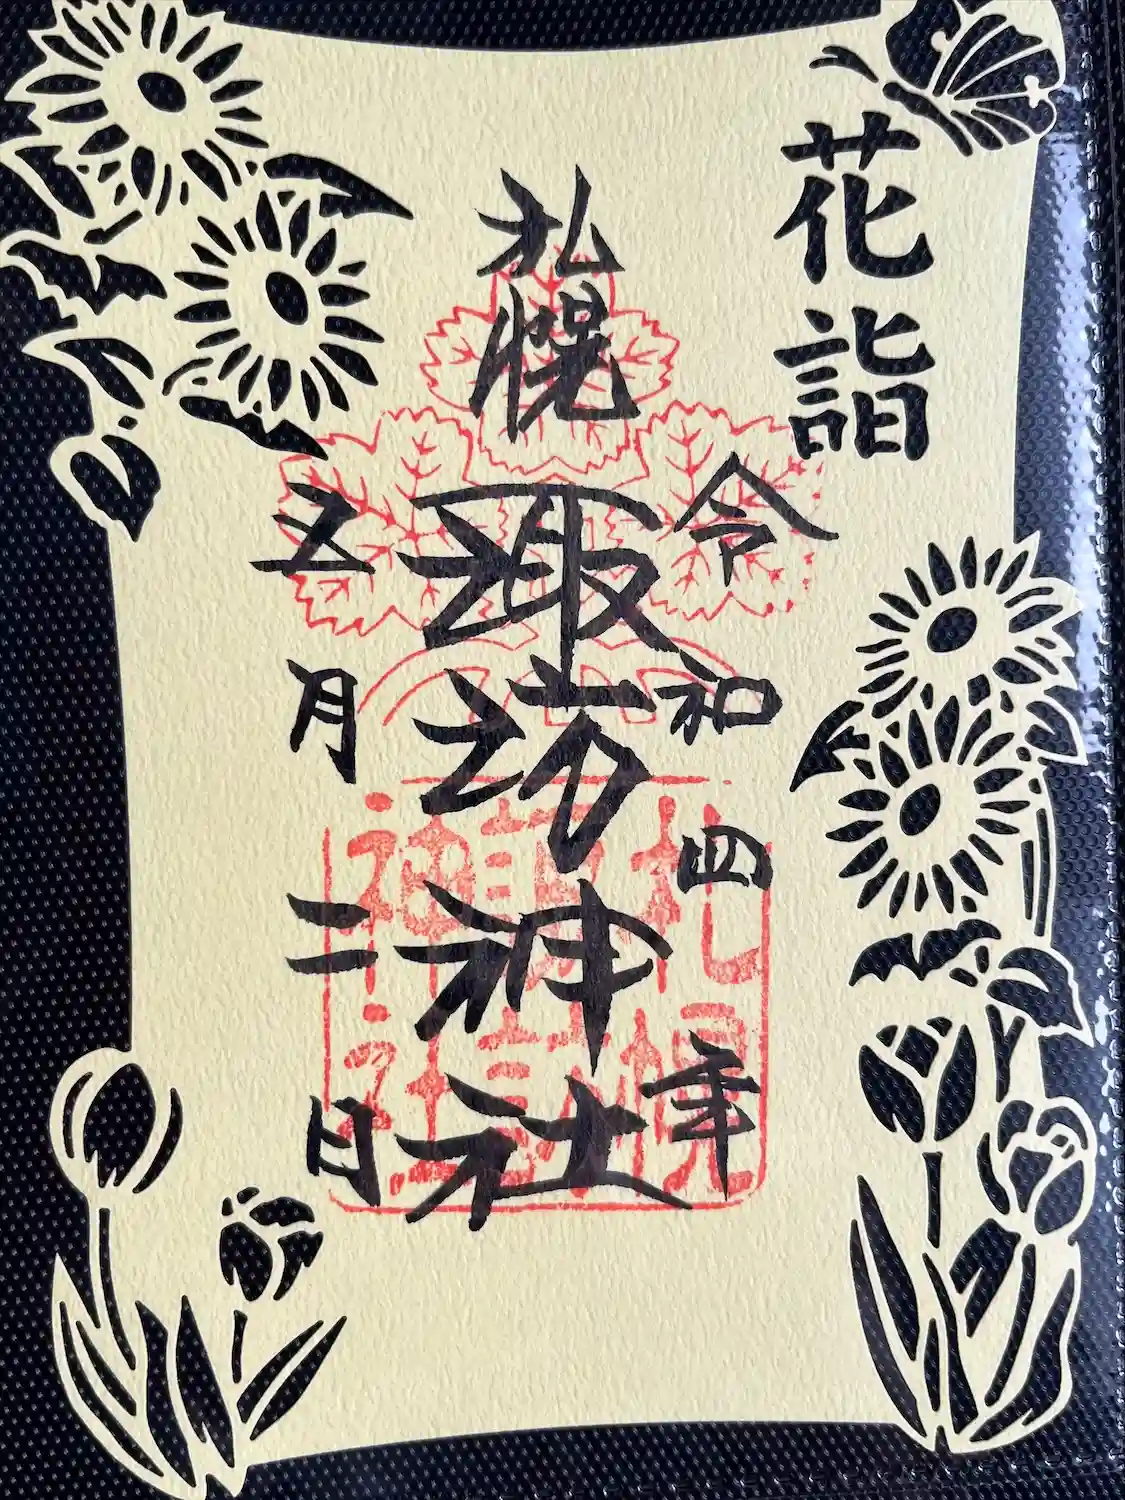 花詣
令和四年
札幌
諏訪神社
五月二日
札幌
諏訪
神社